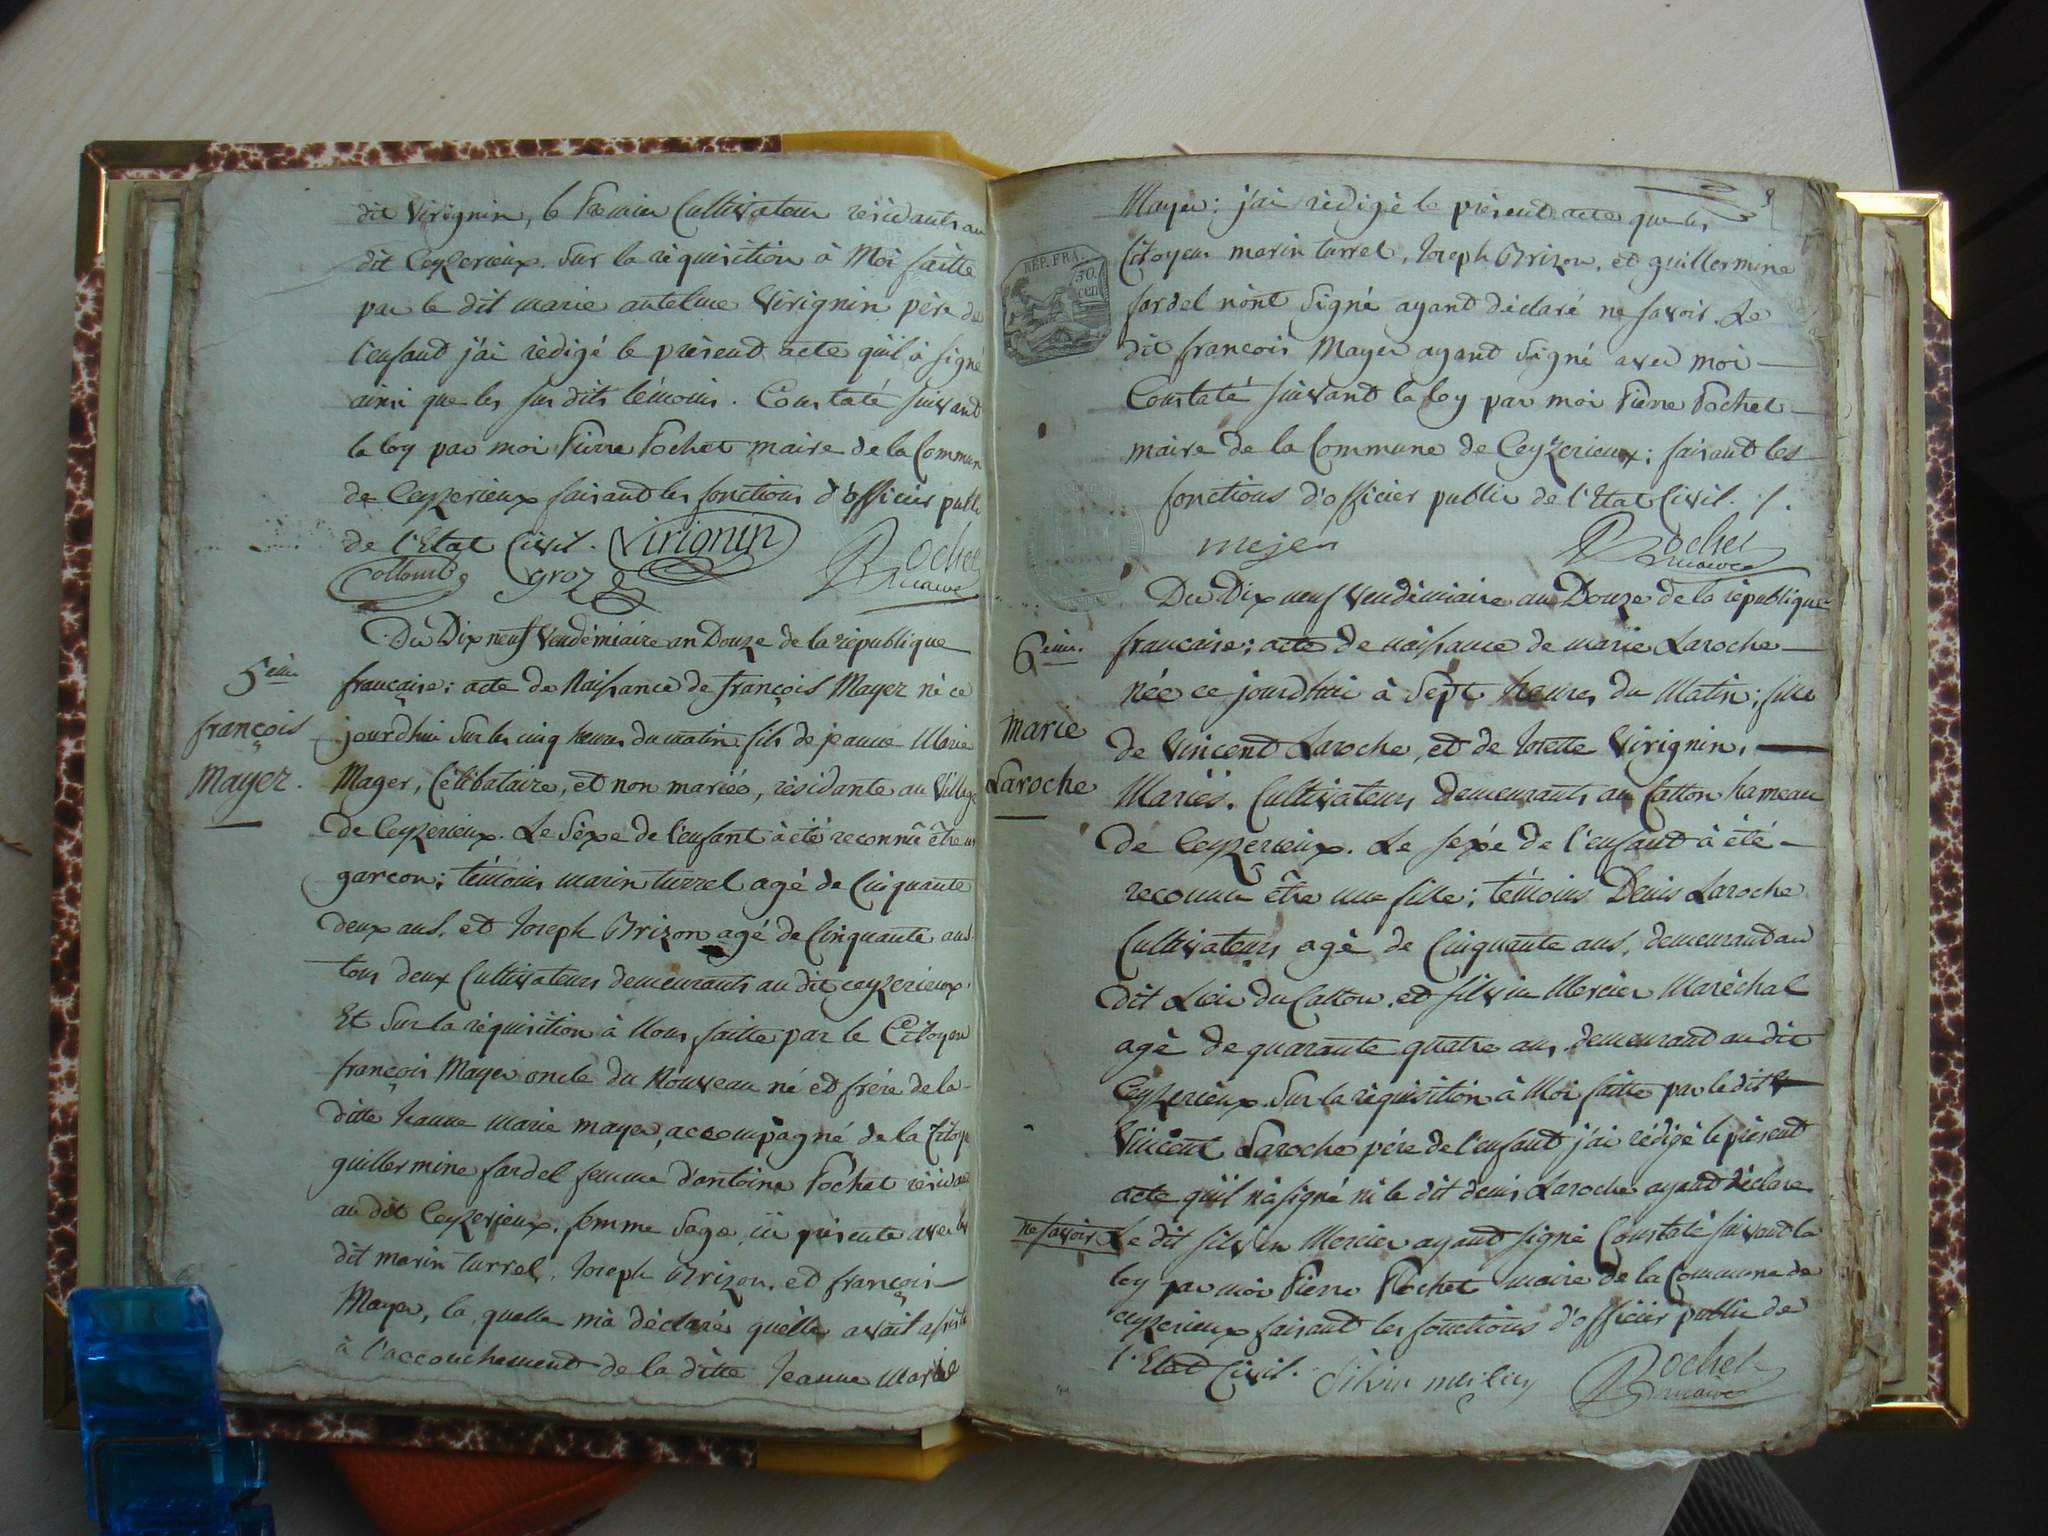 dit Virignin, le premier Cultivateur résidants au
dit Ceyzerieux. Sur la réquisition à Moi faitte
par le dit marie antelme Virignin père de
l'enfant j'ai rédigé le présent acte qu'il à signé
ainsi que les sus dits témoins. Constaté suivant
la loy par moi Pierre Pochet maire de la Commun
de Ceyzerieux faisant les fonctions d'officier publi
de l'Etat Civil. Virignin
Collomb groz Pochet maire
Du Dix neuf Vendémiaire an Douze de la république
5ème
française; acte de Naissance de françois Mayer né ce
françois
jourdhui sur les cinq heures du matin fils de jeanne Marie
Mayer.
Mayer, Célibataire, et non mariée, résidante au Village
de Ceyzerieux. Le sèxe de l'enfant à été reconnu être un
garçon; témoins marin turrel agé de Cinquante
deux ans, et Joseph Brizon agé de Cinquante ans
tous deux Cultivateurs demeurants au dit ceyzerieux.
Et Sur la réquisition à Nous faitte par le Citoyen
françois Mayer oncle du Nouveau né et frére de la
ditte Jeanne marie mayer, accompagné de la Citoye
guillermine fardel femme d'antoine Pochet résidant
au dit Ceyzerieux, femme sage, ici présente avec les
dit marin turrel, Joseph Brizon, et françois
Mayer, la quelle m'à déclaré quelle avait assisté
à l'accouchement de la ditte Jeanne Marie
Mayer: j'ai rédigé le présent acte que les
REP. FRA.
50. CEN
Citoyens marin turrel, Joseph Brizon, et guillermine
fardel n'ont signé ayant déclaré ne savoir. Le
dit françois Mayer ayant signé avec moi
Constaté suivant la loy par moi Pierre Pochet
maire de la Commune de Ceyzerieux; faisant les
fonctions d'officier public de l'Etat Civil. /.
mejer Pochet maire
Du Dix neuf Vendémiaire an Douze de la république
6ème.
francaise; acte de naissance de marie Laroche
née ce jourdhui à Sept heures du Matin; fille
marie
de Vincent Laroche, et de Josette Virignin,
Laroche
Mariés, Cultivateurs demeurants au Catton hameau
de Ceyzerieux. Le sexe de l'enfant à été
reconnu être une fille; témoins Denis Laroche
Cultivateurs agé de Cinquante ans, demeurant au
dit Lieu du Catton, et silvin Mercier Maréchal
agé de quarante quatre ans, demeurant au dit
Ceyzerieux. Sur la réquisition à Moi faitte par le dit
Vincent Laroche père de l'enfant j'ai rédigé le présent
acte qu'il n'a signé ni le dit denis Laroche ayant déclaré
ne savoir Le dit silvin Mercier ayant signé Constaté suivant la
loy par moi Pierre Pochet maire de la Commune de
ceyzerieux faisant les fonctions d'officier public de
l'Etat Civil. Silvin Pochet maire